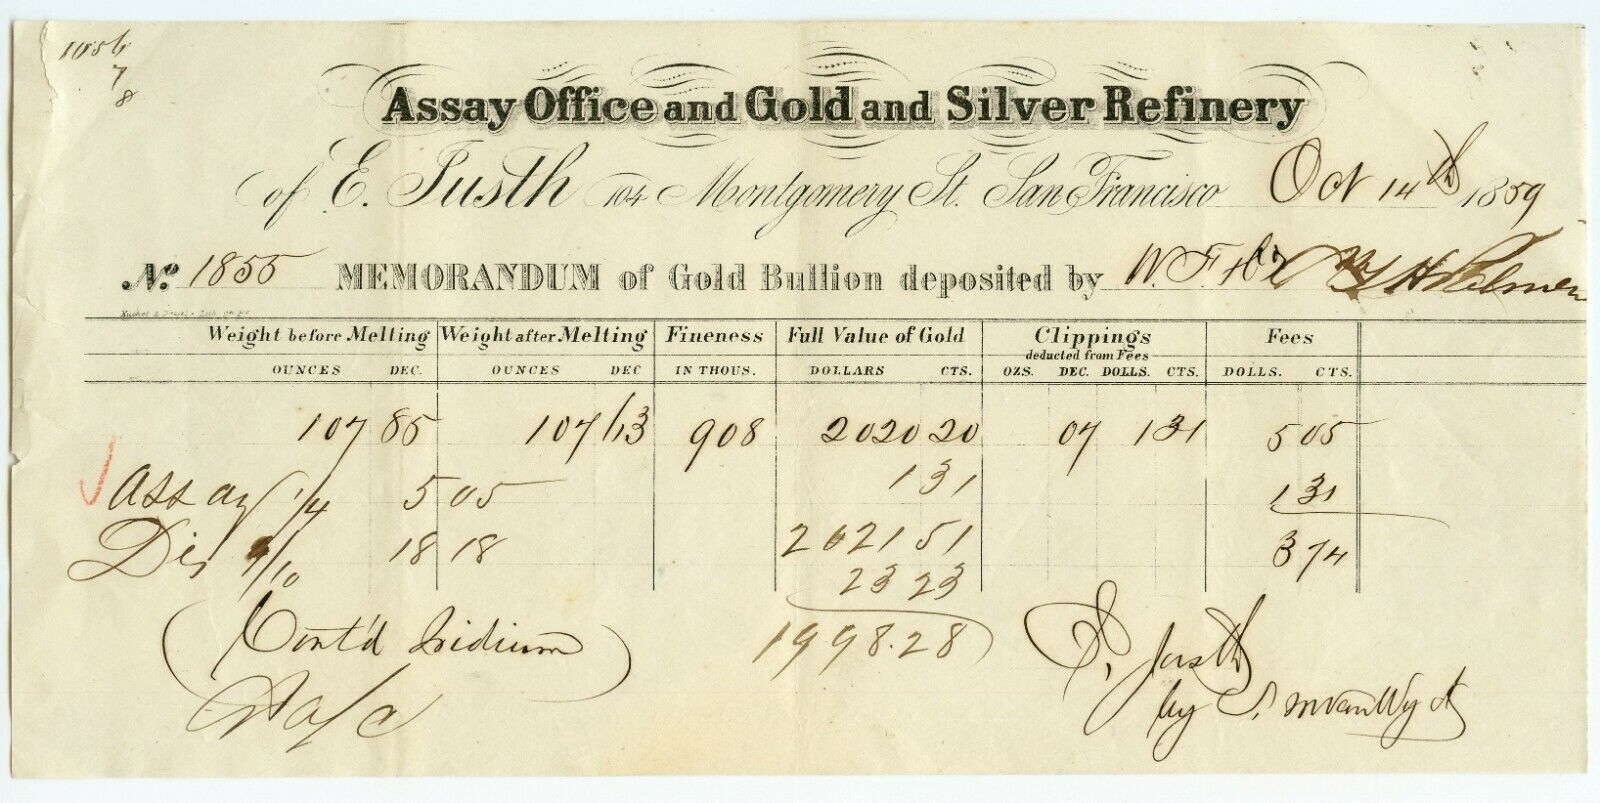 1856
7
8
Assay Office and Gold and Silver Refinery
of E. Justh 104 Montgomery St. San Francisco Oct 14th 1859
No. 1855 MEMORANDUM of Gold Bullion deposited by W. F. & Co
Weight before Melting Weight after Melting Fineness Full Value of Gold Clippings Fees
deducted from Fees
OUNCES DEC. OUNCES DEC IN THOUS. DOLLARS CTS. OZS. DEC. DOLLS. CTS. DOLLS. CTS.
107 85 107 13 908 2020 20 07 1 31 5 05
Assay 1/4 5 05 1 31 1 31
Dis 9/10 18 18 2021 51 3 74
23 23
(Cont'd Iridium) 1998.28 E. Justh
a/c by S. M Van Wyck